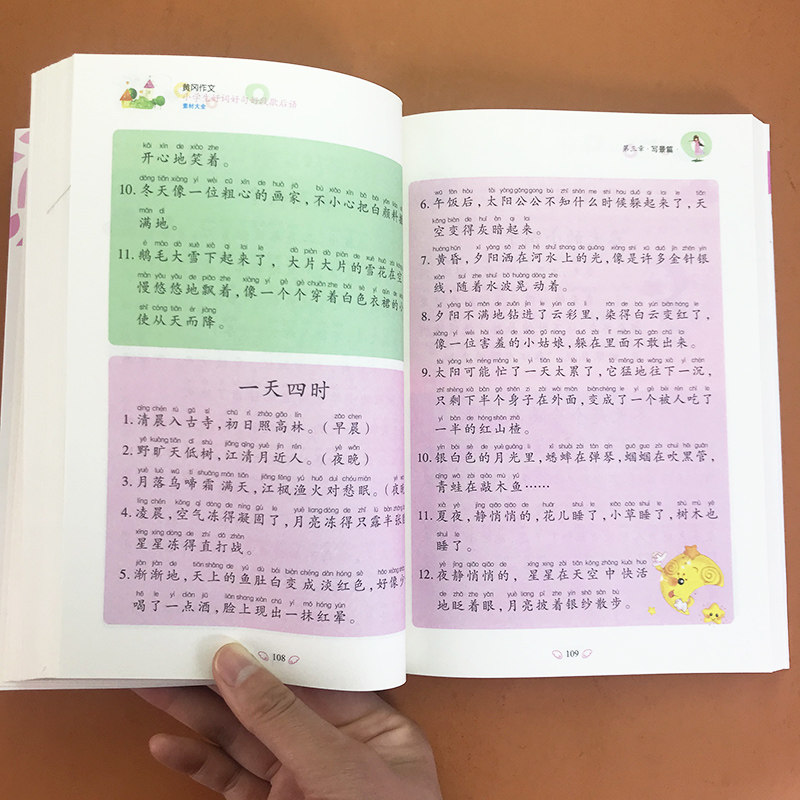 黄冈作文
小学生好词好句好段歇后语
素材大全
kāi xīn de xiào zhe
开心地笑着。
dōng tiān xiàng yí wèi cū xīn de huà jiā bù xiǎo xīn bǎ bái yán liào
10. 冬天像一位粗心的画家，不小心把白颜料
mǎn dì
满地。
é máo dà xuě xià qǐ lái le dà piàn dà piàn de xuě huā zài kōng
11. 鹅毛大雪下起来了，大片大片的雪花在空
màn yōu yōu de piāo zhe xiàng yí gè gè chuān zhe bái sè yī qún de
慢悠悠地飘着，像一个个穿着白色衣裙的小
shǐ cóng tiān ér jiàng
使从天而降。
一天四时
qīng chén rù gǔ sì chū rì zhào gāo lín zǎo chen
1. 清晨入古寺，初日照高林。（早晨）
yě kuàng tiān dī shù jiāng qīng yuè jìn rén yè wǎn
2. 野旷天低树，江清月近人。（夜晚）
yuè luò wū tí shuāng mǎn tiān jiāng fēng yú huǒ duì chóu mián
3. 月落乌啼霜满天，江枫渔火对愁眠。（夜
líng chén kōng qì dòng de níng gù le yuè liang dòng de zhǐ lù bàn
4. 凌晨，空气冻得凝固了，月亮冻得只露半张
xīng xing dòng de zhí dǎ zhàn
星星冻得直打战。
jiàn jiàn de tiān shàng de yú dù bái biàn chéng dàn hóng sè hǎo xiàng
5. 渐渐地，天上的鱼肚白变成淡红色，好像少
hē le yì diǎn jiǔ liǎn shang xiàn chū yì mǒ hóng yùn
喝了一点酒，脸上现出一抹红晕。
108
第三章·写景篇
wǔ fàn hòu tài yáng gōng gong bù zhī shén me shí hou duǒ qǐ lai le tiān
6. 午饭后，太阳公公不知什么时候躲起来了，天
kōng biàn de huī àn qǐ lai
空变得灰暗起来。
huáng hūn xī yáng sǎ zài hé shuǐ shang de guāng xiàng shì xǔ duō jīn zhēn yín
7. 黄昏，夕阳洒在河水上的光，像是许多金针银
xiàn suí zhe shuǐ bō huàng dòng zhe
线，随着水波晃动着。
xī yáng bù mǎn de zuān jìn le yún cai li rǎn de bái yún biàn hóng le
8. 夕阳不满地钻进了云彩里，染得白云变红了，
xiàng yí wèi hài xiū de xiǎo gū niang duǒ zài lǐ miàn bù gǎn chū lai
像一位害羞的小姑娘，躲在里面不敢出来。
tài yáng kě néng máng le yì tiān tài lèi le tā měng de wǎng xià yì chén
9. 太阳可能忙了一天太累了，它猛地往下一沉，
zhǐ shèng xià bàn gè shēn zi zài wài miàn biàn chéng le yí gè bèi rén chī le
只剩下半个身子在外面，变成了一个被人吃了
yí bàn de hóng shān zhā
一半的红山楂。
yín bái sè de yuè guāng lǐ xī shuài zài tán qín guō guo zài chuī hēi guǎn
10. 银白色的月光里，蟋蟀在弹琴，蝈蝈在吹黑管，
qīng wā zài qiāo mù yú
青蛙在敲木鱼……
xià yè jìng qiāo qiāo de huār shuì le xiǎo cǎo shuì le shù mù yě
11. 夏夜，静悄悄的，花儿睡了，小草睡了，树木也
shuì le
睡了。
yè jìng qiāo qiāo de xīng xing zài tiān kōng zhōng kuài huo
12. 夜静悄悄的，星星在天空中快活
de zhǎ zhe yǎn yuè liang pī zhe yín shā sàn bù
地眨着眼，月亮披着银纱散步。
109